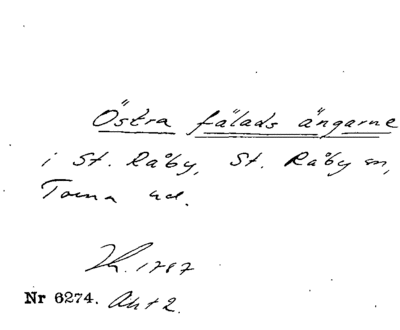 Östra fälads ängarne
i St. Råby, St. Råby sn,
Torna hd.
Lh. 1787
Nr 6274. Akt 2.